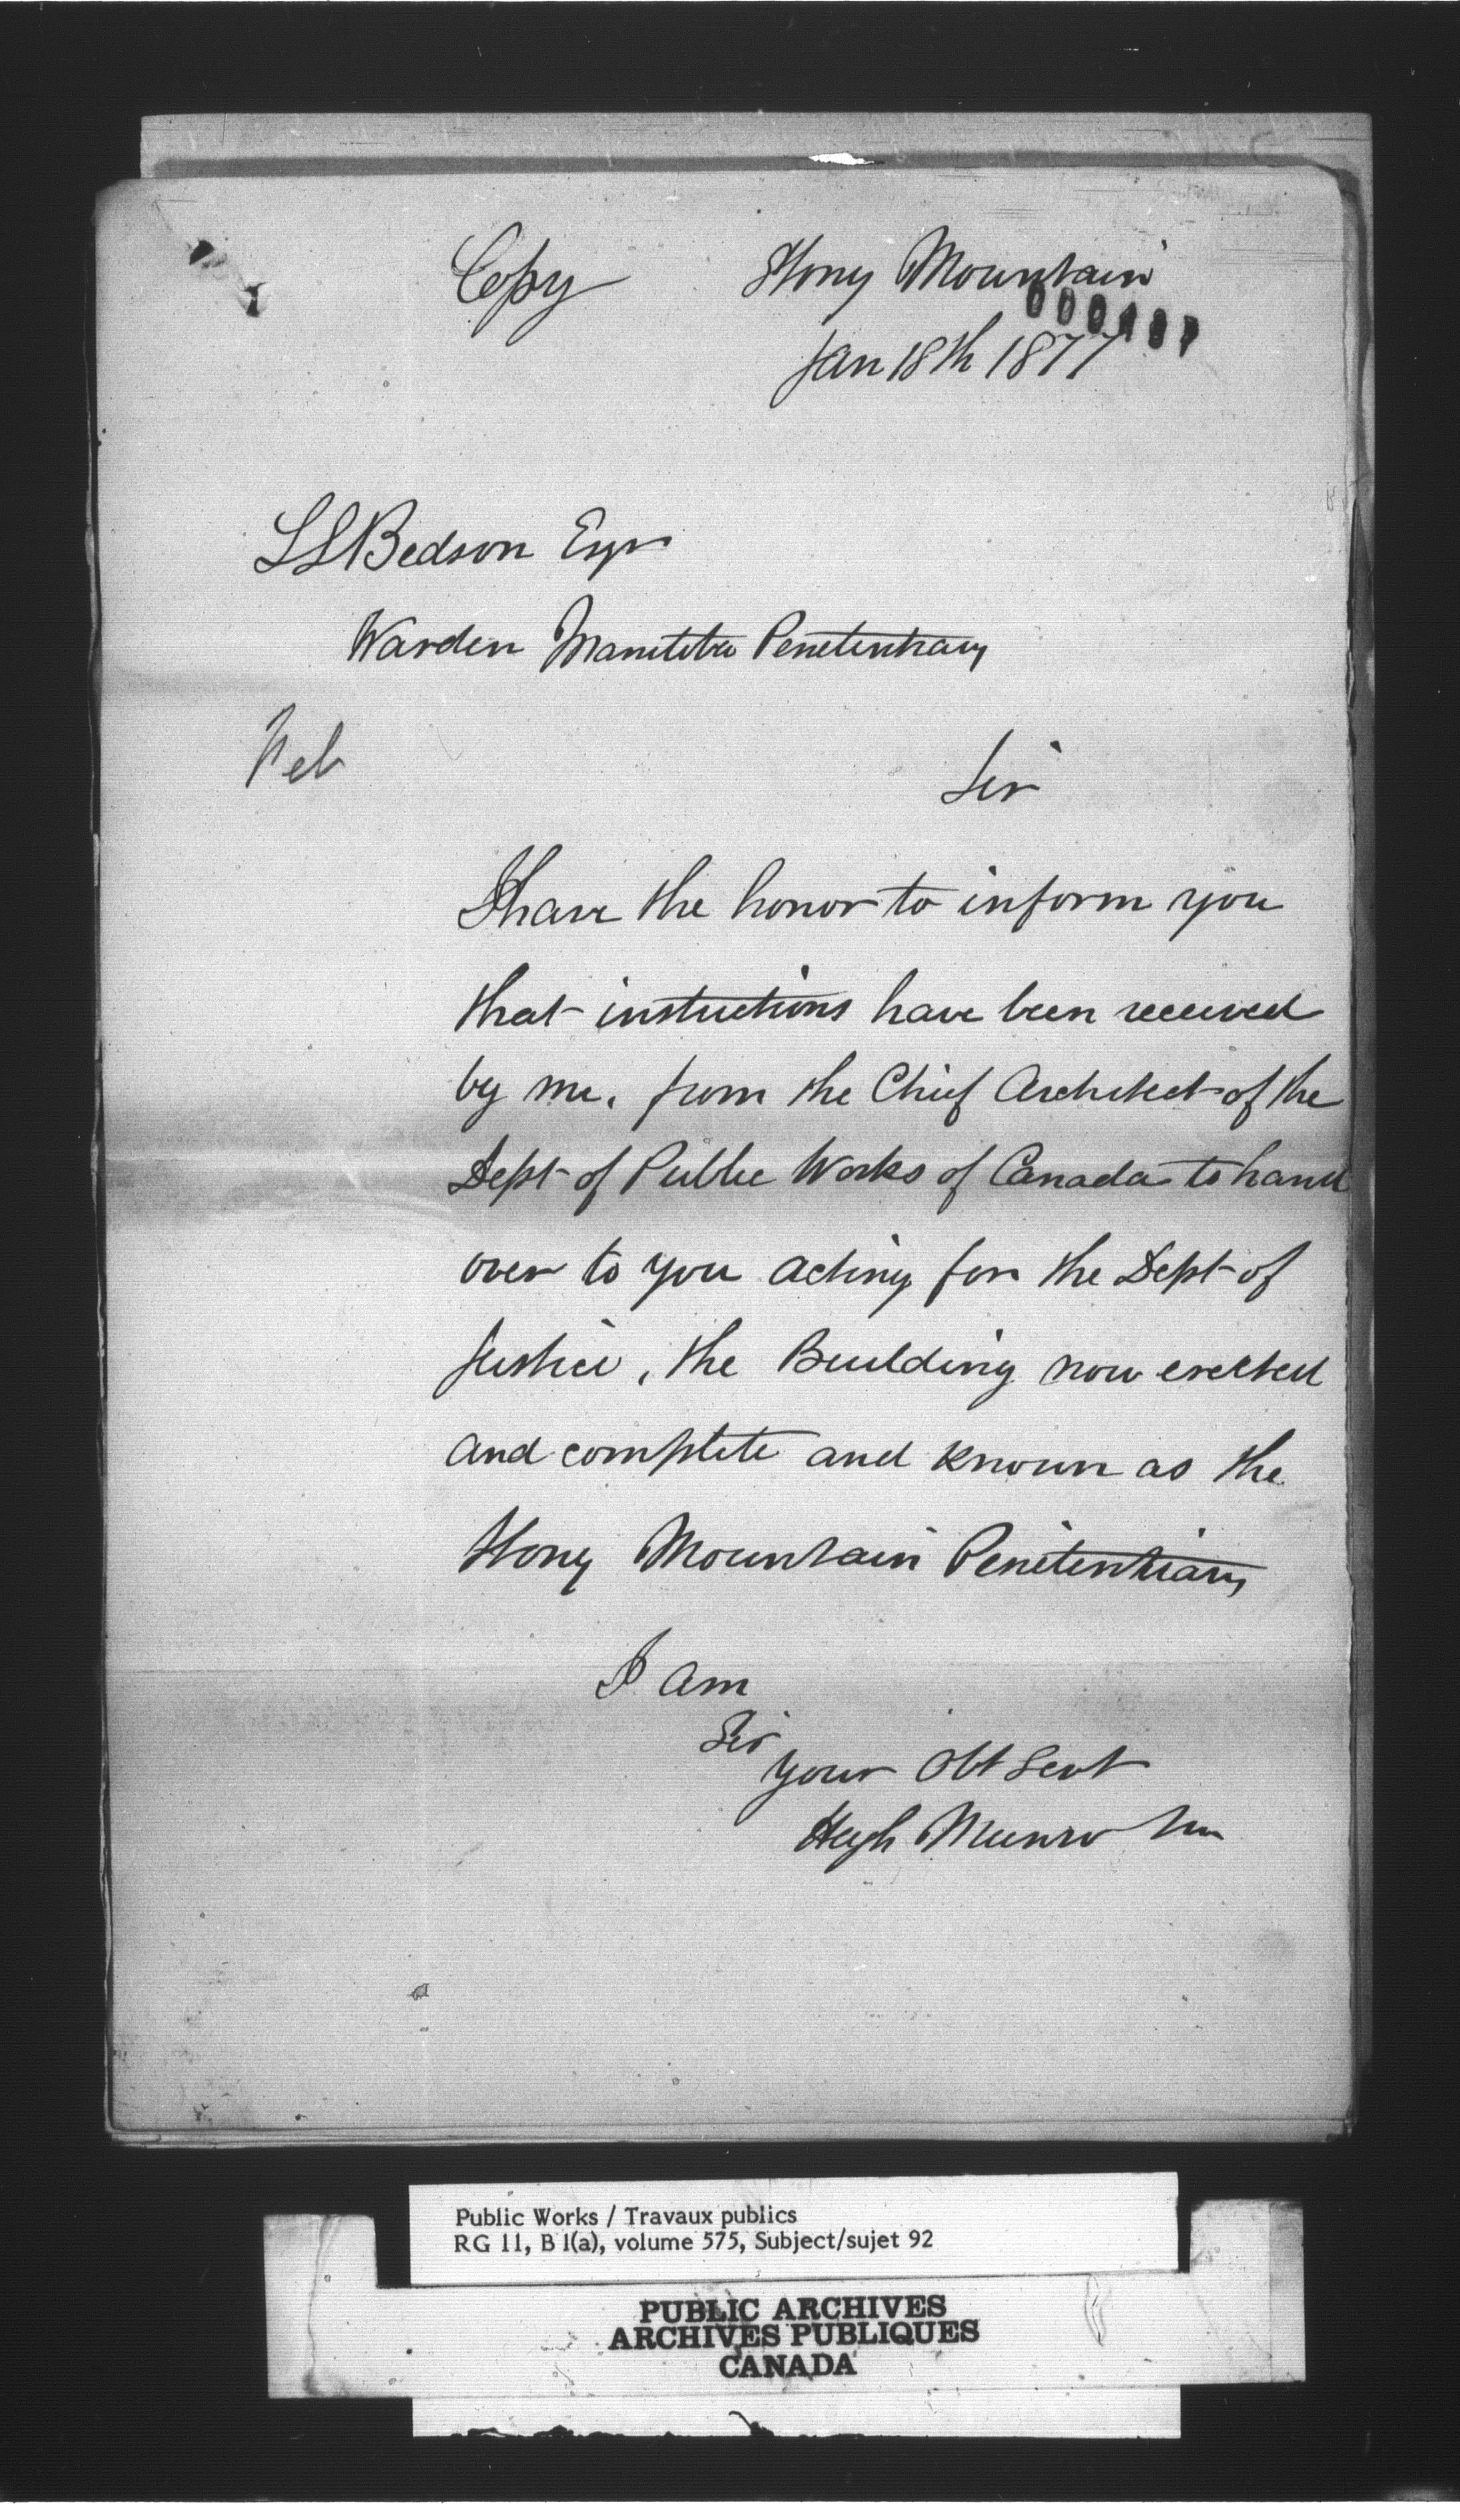 Copy Stony Mountain
Jan 18th 1877
S L Bedson Esqr
Warden Manitoba Penetentiary
Feb
Sir
I have the honor to inform you
that instuctions have been received
by me, from the Chief Architect of the
Dept of Public Works of Canada to hand
over to you acting for the Dept of
Justice, the Building now erected
and complete and known as the
Stony Mountain Penitentiary
I am
Sir
your Obt Sevt
Hugh Munro
Public Works / Travaux publics
RG 11, B 1(a), volume 575, Subject/sujet 92
PUBLIC ARCHIVES
ARCHIVES PUBLIQUES
CANADA